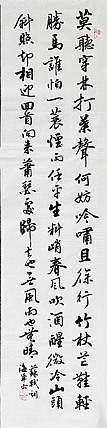 莫聽穿林打葉聲何妨吟嘯且徐行竹杖芒鞋輕
勝馬誰怕一蓑煙雨任平生料峭春風吹酒醒微冷山頭
斜照却相迎回首向来蕭瑟處歸去也无風雨也無晴
蘇軾詞